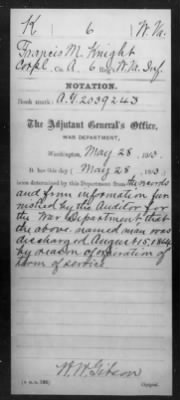 K 6 W.Va.
Francis M. Knight
Corpl. Co A. 6 W.Va. Inf.
NOTATION.
Book mark: A.G. 2039243
The Adjutant General's Office,
WAR DEPARTMENT,
Washington, May 28, 1913.
It has this day (May 28, 1913.)
been determined by this Department from the records
and from information fur-
nished by the Auditor for
the War Department that
the above named man was
discharged August 15, 1864,
by reason of expiration of
term of service
W. H. Gibson
Copyist.